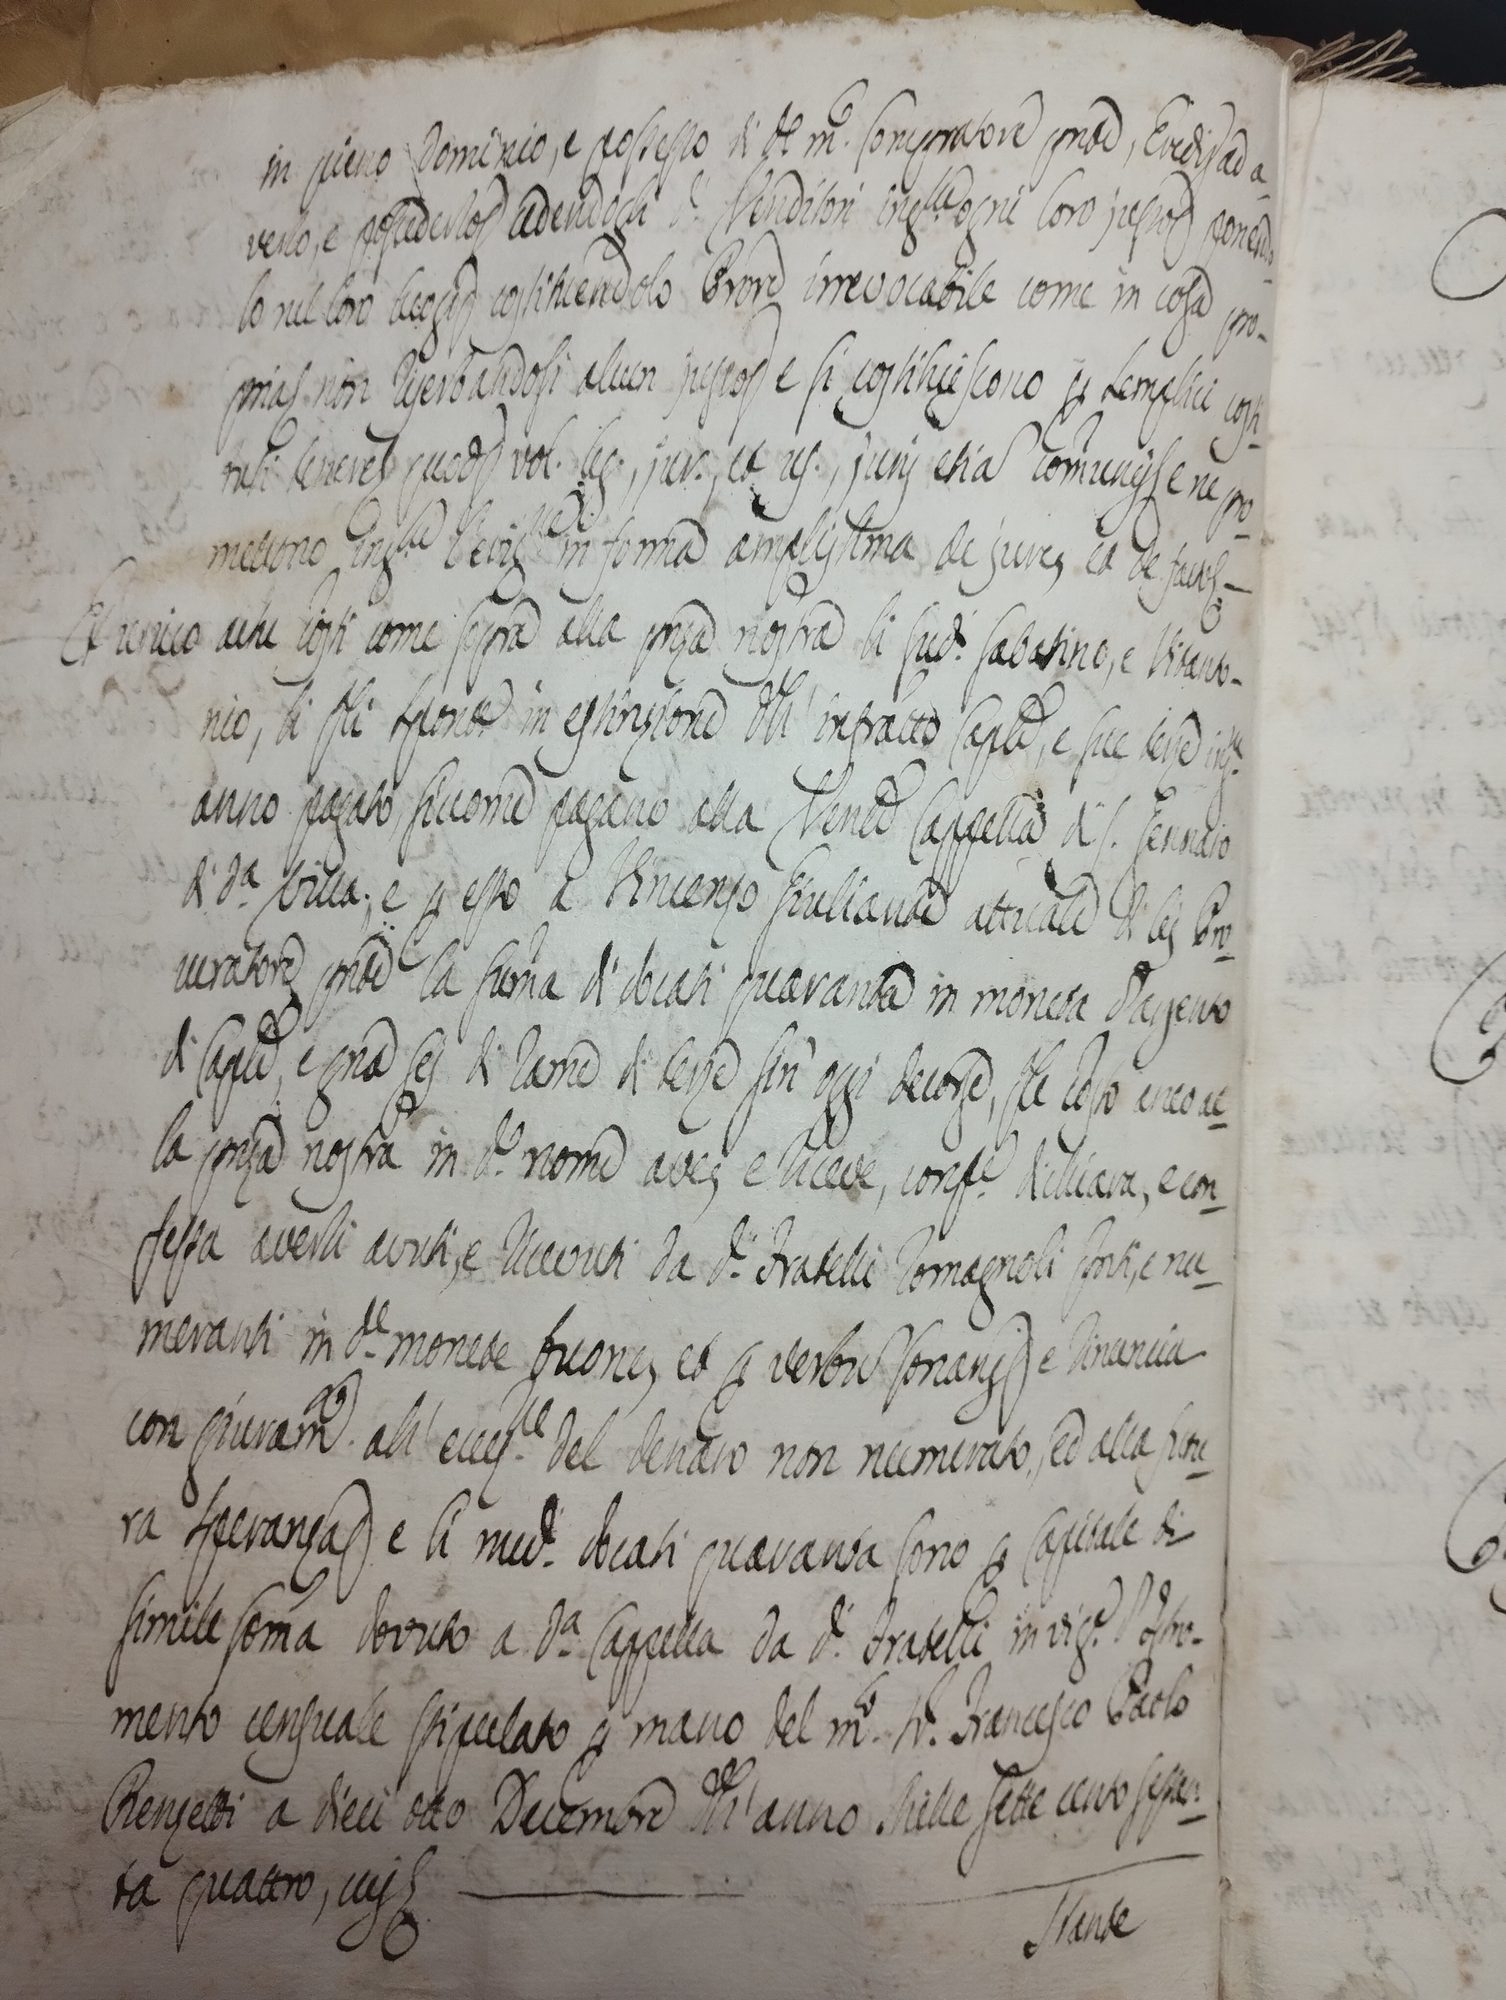 in pieno dominio, e possesso di d.º m.º Compratore pnte, Eredi, ad a-
verlo, e possederlo, cedendogli d.i Venditori ogni loro jus, ponendo
lo nel loro luogo, costituendolo Prore irrevocabile come in cosa pro-
pria, non riserbandosi alcun jus, e si costituiscono p semplici costi-
tuti tenere, vol. leg., jur., et us., juny etia comunis, e ne pro-
mettono in forma amplissima de jure, et de facto,
Et unico actu costi come sopra alla pnza nostra li sud.i Sabatino, e Vitanto-
nio, li sti sponte in estinzione dell' infratto Caple, e sue terze
anno pagato, siccome pagano alla Vened Cappella di S. Gennaro
di d.a Villa, e p esso a Vincenzo Giuliante attuale di lej Pro-
curatore pnte la sum̃a di docati quaranta in moneta d'argento
di Caple, e gna sej di rame di terze sin' oggi decorse, ste costo anco al-
la pnza nostra in d.º nome ave, e riceve, conf.e dichiara, e con-
fessa averli avuti, e ricevuti da d.i Fratelli Romagnoli costi, e nu-
meranti in d.e monete buone, et p verbu e rinuncia
con giuram.to all' eccez.ne del denaro non numerato, ed alla futu-
ra speranza, e li med.i docati quaranta sono p capitale di
simile som̃a dovuto a d.a Cappella da d.i Fratelli in vig.e d' Istro-
mento censuale stipulato p mano del m.º N.r Francesco Paolo
Renzetti a dieci otto Decembre dell' anno Mille sette cento sessan-
ta quattro,
Stante